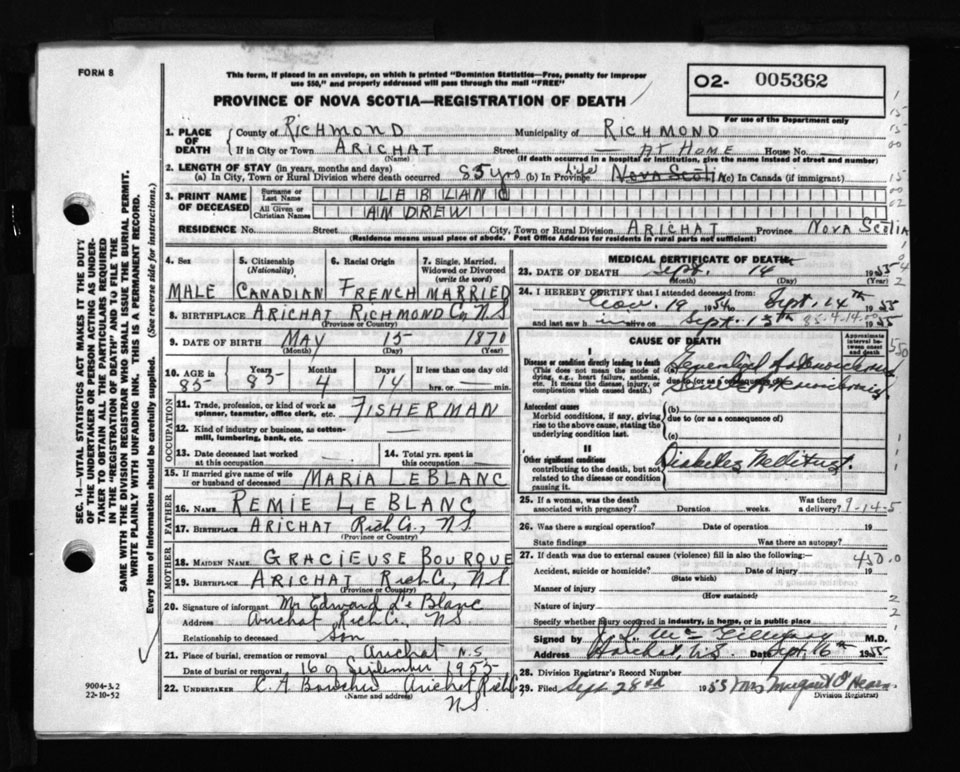 FORM 8
This form, if placed in an envelope, on which is printed "Dominion Statistics—Free, penalty for improper
use $50," and properly addressed will pass through the mail "FREE"
PROVINCE OF NOVA SCOTIA—REGISTRATION OF DEATH
02- 005362
For use of the Department only
1. PLACE OF DEATH County of RICHMOND Municipality of RICHMOND
If in City or Town ARICHAT Street — AT HOME House No. —
(Name) (If death occurred in a hospital or institution, give name instead of street and number)
2. LENGTH OF STAY (in years, months and days)
(a) In City, Town or Rural Division where death occurred 85 yrs (b) In Province Life Nova Scotia (c) In Canada (if immigrant)
3. PRINT NAME OF DECEASED
Surname or Last Name LEBLANC
All Given or Christian Names ANDREW
RESIDENCE No. Street City, Town or Rural Division ARICHAT Province NOVA SCOTIA
(Residence means usual place of abode. Post Office Address for residents in rural parts not sufficient)
4. Sex 5. Citizenship (Nationality) 6. Racial Origin 7. Single, Married, Widowed or Divorced (write the word)
MALE CANADIAN FRENCH MARRIED
8. BIRTHPLACE ARICHAT RICHMOND Co, N.S
(Province or Country)
9. DATE OF BIRTH MAY 15 1870
(Month) (Day) (Year)
10. AGE IN Years Months Days If less than one day
85 85 4 14 hrs. or min.
OCCUPATION
11. Trade, profession, or kind of work as spinner, teamster, office clerk, etc. FISHERMAN
12. Kind of industry or business, as cotton-mill, lumbering, bank, etc. —
13. Date deceased last worked at this occupation — 14. Total yrs. spent in this occupation —
15. If married give name of wife or husband of deceased MARIA LEBLANC
FATHER
16. NAME REMIE LEBLANC
17. BIRTHPLACE ARICHAT Rich Co., N.S
(Province or Country)
MOTHER
18. MAIDEN NAME GRACIEUSE BOURQUE
19. BIRTHPLACE ARICHAT Rich Co., N.S
(Province or Country)
20. Signature of informant Mr Edward LeBlanc
Address Arichat Rich Co., N.S.
Relationship to deceased Son
21. Place of burial, cremation or removal Arichat N.S
Date of burial or removal 16 of September 1955
22. UNDERTAKER Arichat Rich Co
(Name and address)
N.S.
MEDICAL CERTIFICATE OF DEATH
23. DATE OF DEATH Sept. 14 1955
(Month) (Day) (Year)
24. I HEREBY CERTIFY that I attended deceased from:
Nov. 19 1954 to Sept. 14th 1955
and last saw him alive on Sept. 13th 1955
CAUSE OF DEATH
Approximate interval between onset and death
I
Disease or condition directly leading to death
(This does not mean the mode of dying, e.g., heart failure, asthenia, etc. It means the disease, injury, or complication which caused death.)
(a)
due to (or as a consequence of)
Antecedent causes
Morbid conditions, if any, giving rise to the above cause, stating the underlying condition last.
(b)
due to (or as a consequence of)
(c)
II
Other significant conditions
contributing to the death, but not related to the disease or condition causing it.
Diabetes Mellitus.
25. If a woman, was the death associated with pregnancy? Duration weeks. Was there a delivery? 9-14-5
26. Was there a surgical operation? Date of operation 19
State findings Was there an autopsy?
27. If death was due to external causes (violence) fill in also the following:— 450.0
Accident, suicide or homicide? Date of injury 19
(State which)
Manner of injury
(How sustained)
Nature of injury
Specify whether injury occurred in industry, in home, or in public place
Signed by M.D.
Address Arichat, N.S. Date Sept. 16th 1955
28. Division Registrar's Record Number
29. Filed Sept 28th 1955 Mrs Margaret O'Hearn
Division Registrar
SEC. 14—VITAL STATISTICS ACT MAKES IT THE DUTY
OF THE UNDERTAKER OR PERSON ACTING AS UNDER-
TAKER TO OBTAIN ALL THE PARTICULARS REQUIRED
IN THE "REGISTRATION OF DEATH" AND TO FILE THE
SAME WITH THE DIVISION REGISTRAR WHO SHALL ISSUE THE BURIAL PERMIT.
WRITE PLAINLY WITH UNFADING INK. THIS IS A PERMANENT RECORD.
Every item of information should be carefully supplied. (See reverse side for instructions.)
9004-3.2
22-10-52